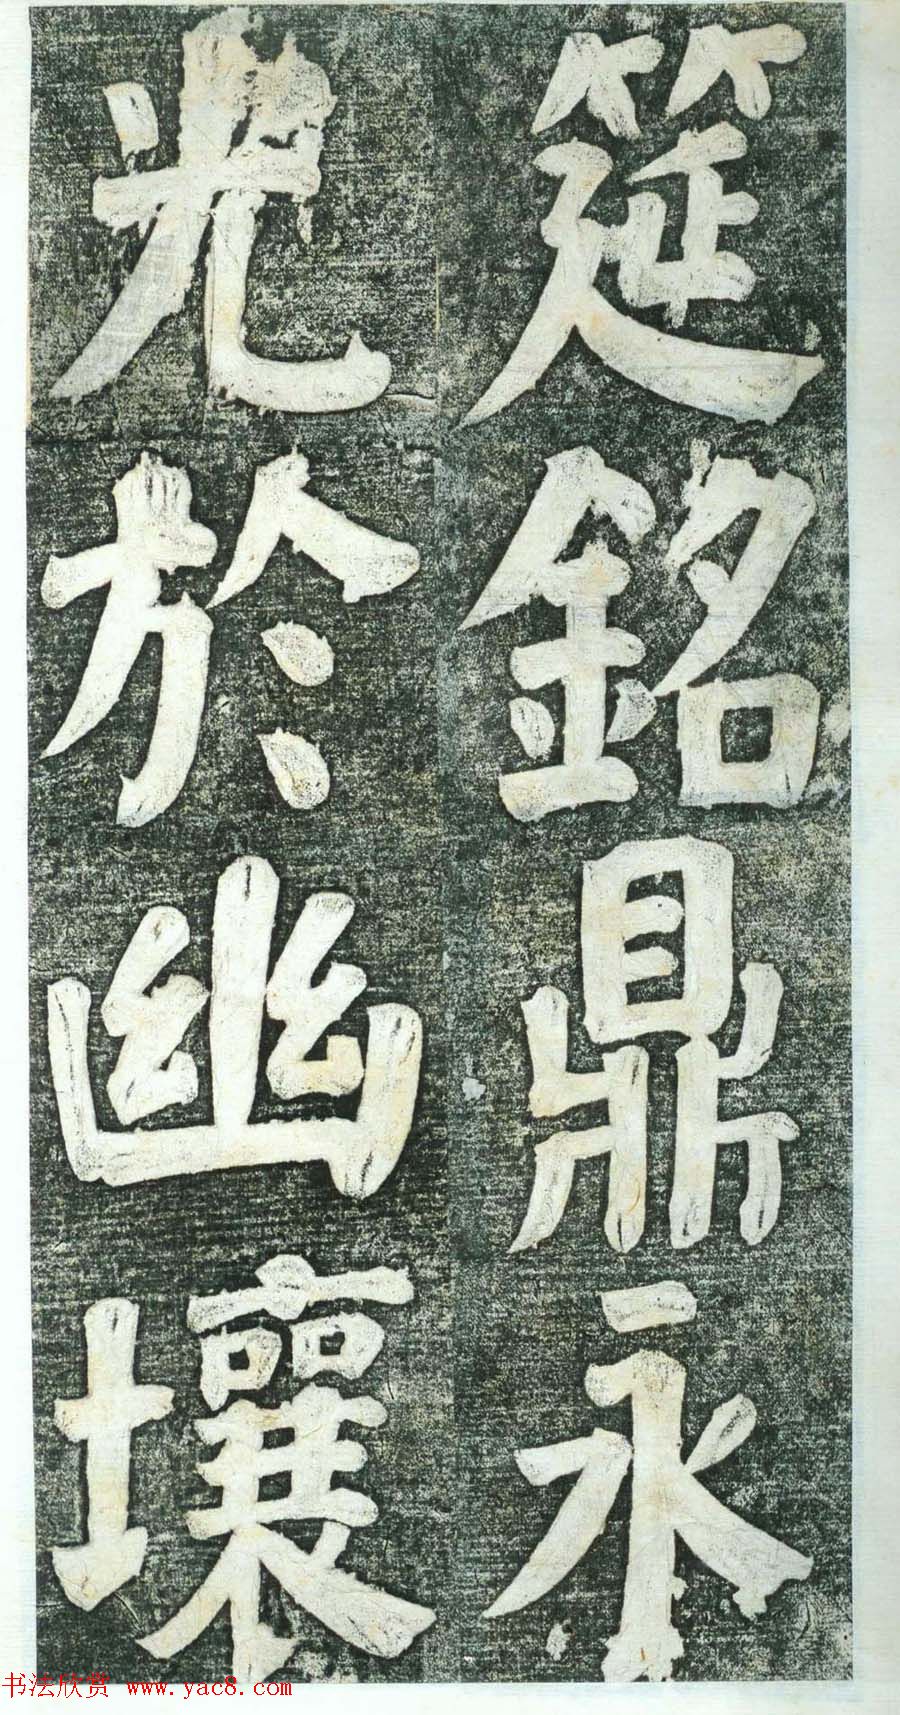 筵銘鼎永
光於幽壤
书法欣赏 www.yac8.com